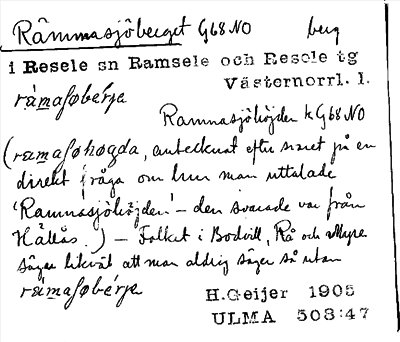 Rammasjöberget G68 NO berg
i Resele sn Ramsele och Resele tg
Västernorrl. l.
ramasøbérja
Ramnasjöhöjden k G68 NO
(ramasøhøgda, antecknat efter svaret på en
direkt fråga om hur man uttalade
'Ramnasjöhöjden' – den svarade var från
Hållås.) – Folket i Bodvill, Rå och Myre
säger likväl att man aldrig säger så utan
ramasøbérja
H.Geijer 1905
ULMA 508:47